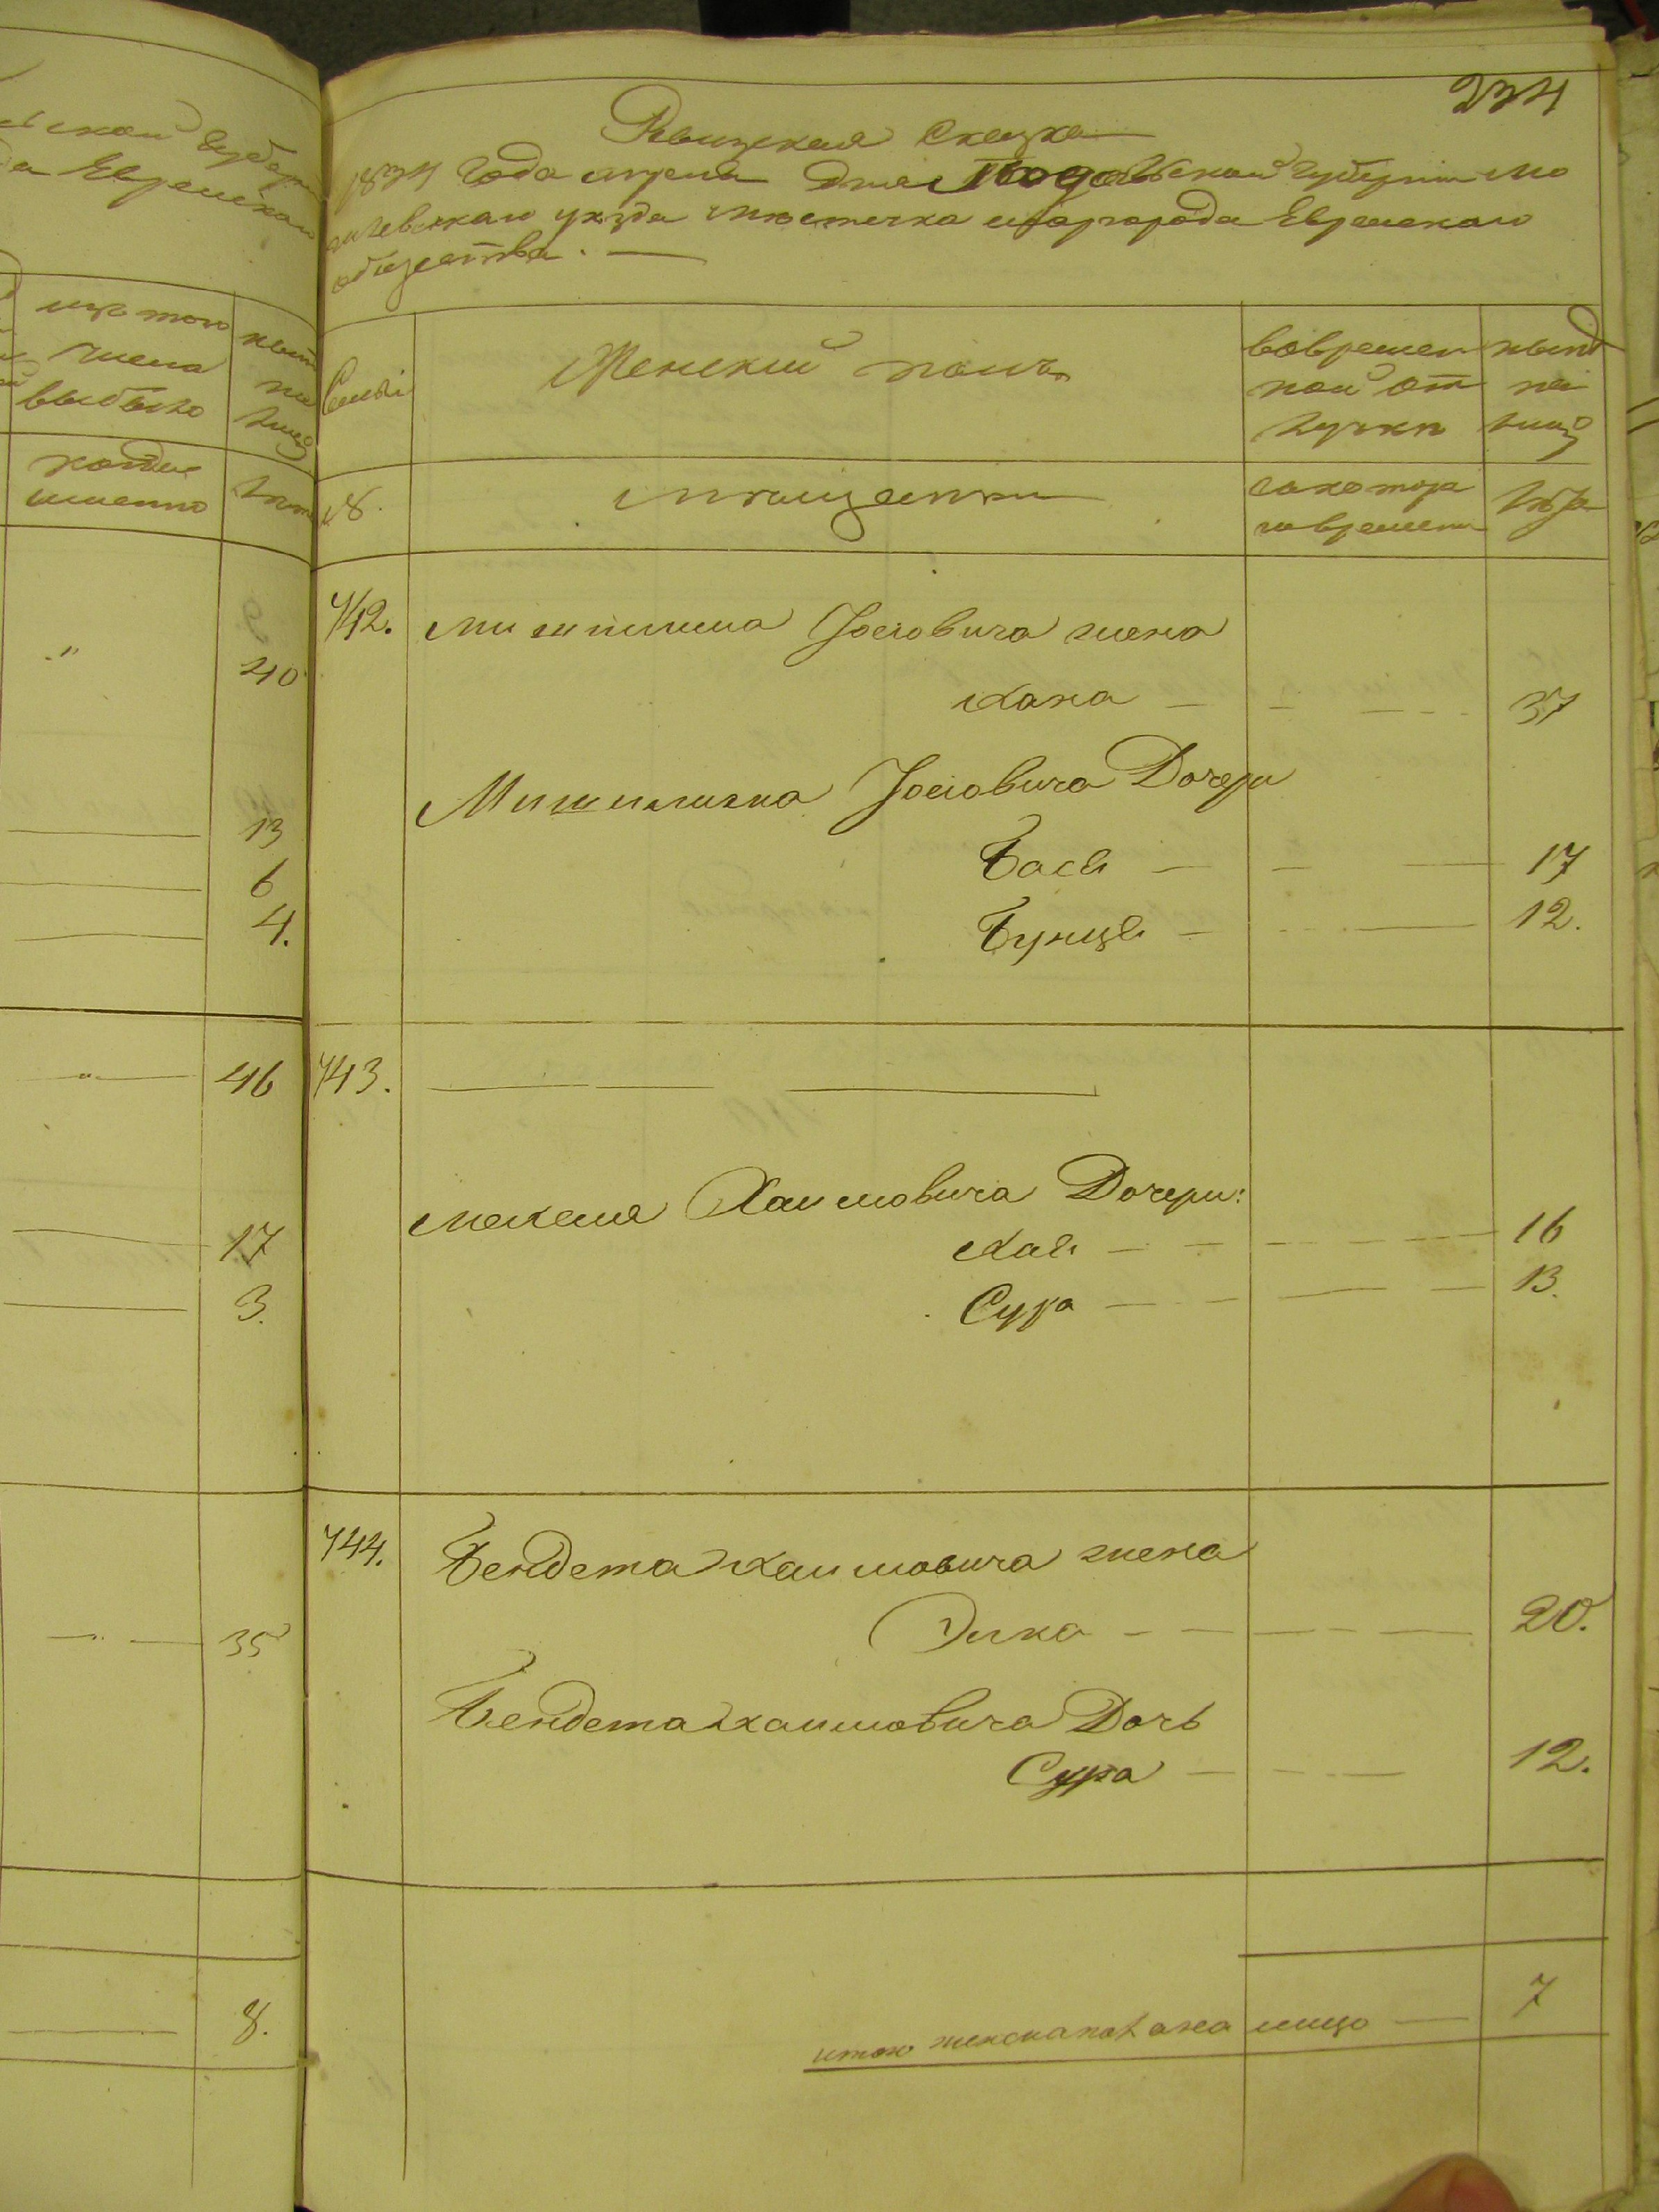 ской Губер
да Еврейскаго
изъ того
числа
выбыло
нын
на
лиц
когда
именно
лет
40
13
6
4.
46
17
3.
35
8.
234
Ревизская Сказка
1834 года апреля дня Подольской Губернии Мо
гилевскаго уезда местечка Шаргорода Еврейскаго
общества.
Семьи
Женский полъ
вовремен
ной от
лучки
ныне
на
лицо
№.
Мещанки
скотора
говремени
лета
742. Мошка Иосiовича жена
Хана 37
Иосiовича Дочери
Бася 17
Бунця 12.
743.
Хаимовича Дочери:
Хая 16
Сура 13.
744. Бендета Хаимовича жена
20.
Бендета Хаимовича Дочь
Сура 12.
итого женска пола на лицо 7